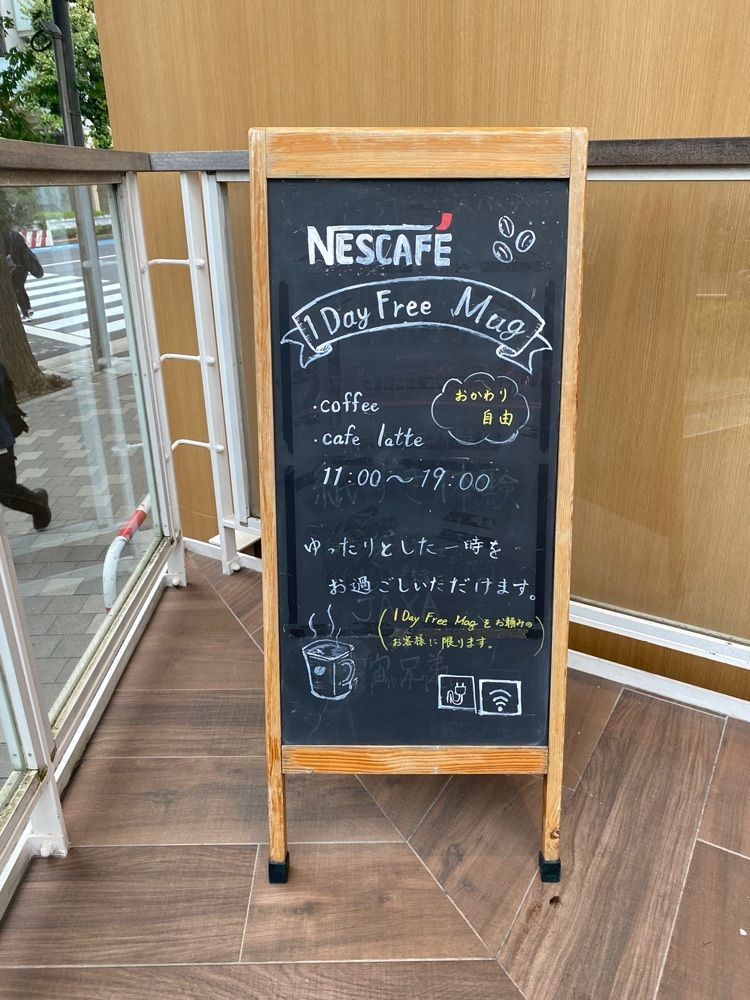 NESCAFÉ
1 Day Free Mug
・coffee
・cafe latte
おかわり
自由
11:00～19:00
ゆったりとした一時を
お過ごしいただけます。
(1 Day Free Mug をお頼みの
お客様に限ります。)